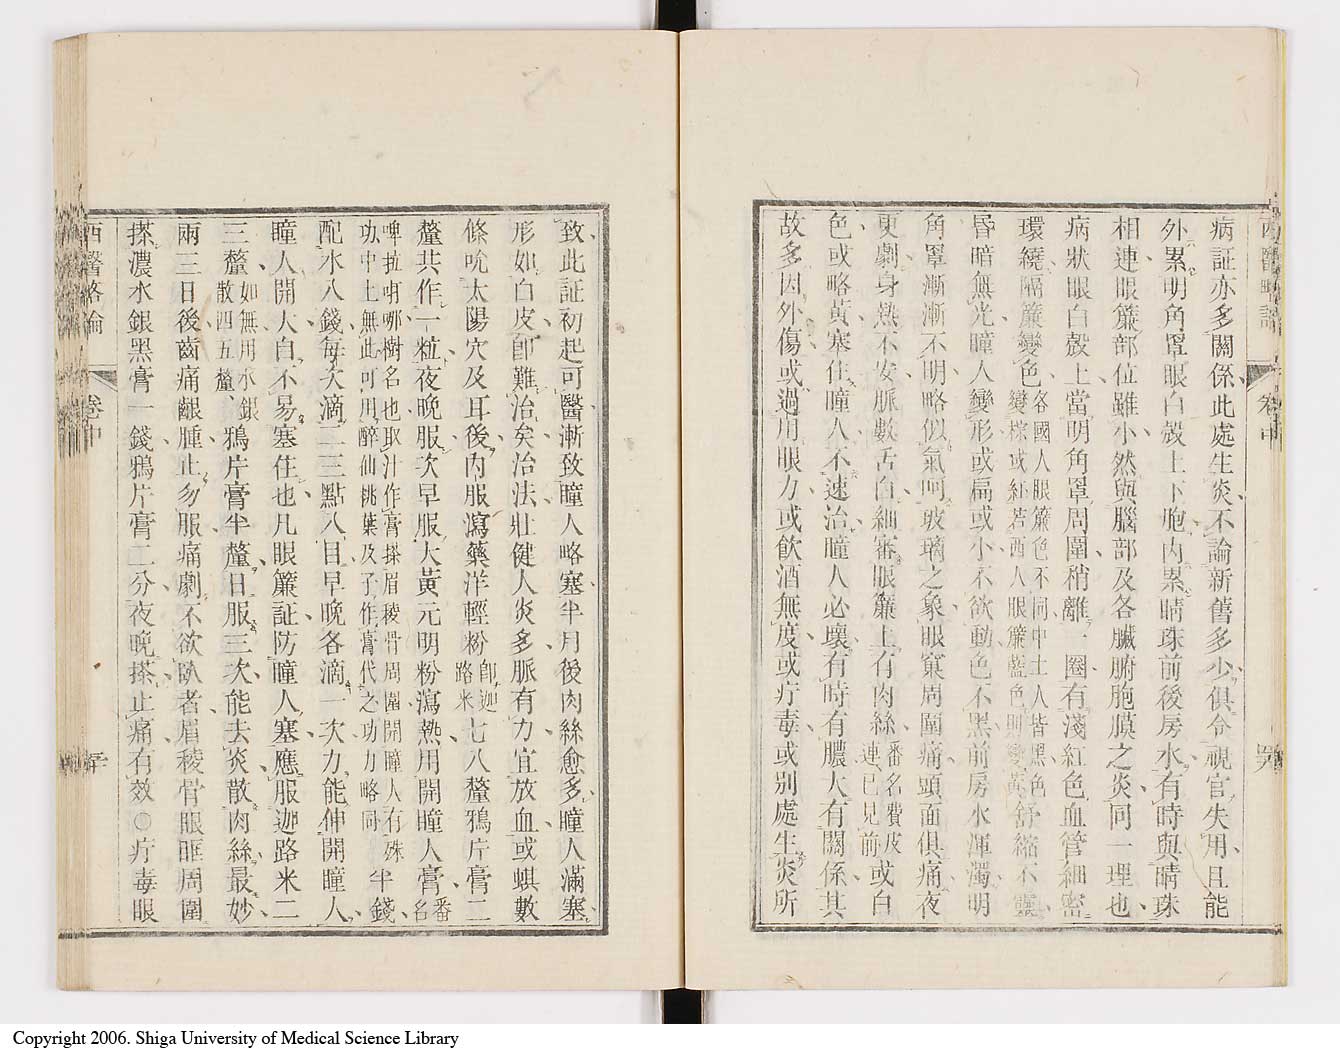 病証亦多關係此處生炎不論新舊多少俱令視官失用且能
外累明角罩眼白殼上下胞内累睛珠前後房水有時與睛珠
相連眼簾部位雖小然與腦部及各臟腑胞膜之炎同一理也
病狀眼白殼上當明角罩周圍稍離一圈有淺紅色血管細密
環繞隔簾變色各國人眼簾色不同中土人皆黑色變棕或紅若西人眼簾藍色則變黃舒縮不靈
昏暗無光瞳人變形或扁或小不欲動色不黑前房水渾濁明
角罩漸漸不明略似氣呵玻璃之象眼窠周圍痛頭面俱痛夜
更劇身熱不安脈數舌白細審眼簾上有肉絲番名費皮連已見前或白
色或略黃塞住瞳人不速治瞳人必壞有時有膿大有關係其
故多因外傷或過用眼力或飲酒無度或疔毒或别處生炎所
西醫略論 卷中
致此証初起可醫漸致瞳人略塞半月後肉絲愈多瞳人滿塞
形如白皮即難治矣治法壯健人炎多脈有力宜放血或蜞數
條吮太陽穴及耳後内服瀉藥洋輕粉即迦路米七八釐鴉片膏二
釐共作一粒夜晚服次早服大黃元明粉瀉熱用開瞳人膏番名
啤拉唎哪樹名也取汁作膏搽眉稜骨周圍開瞳人有殊功中土無此可用醉仙桃葉及子作膏代之功力略同半錢
配水八錢每次滴二三點入目早晚各滴一次力能伸開瞳人
瞳人開大自不易塞住也凡眼簾証防瞳人塞應服迦路米二
三釐如無用水銀散四五釐鴉片膏半釐日服三次能去炎散肉絲最妙
兩三日後齒痛齦腫止勿服痛劇不欲臥者眉稜骨眼眶周圍
搽濃水銀黑膏一錢鴉片膏二分夜晚搽止痛有效○疔毒眼
西醫略論 卷中